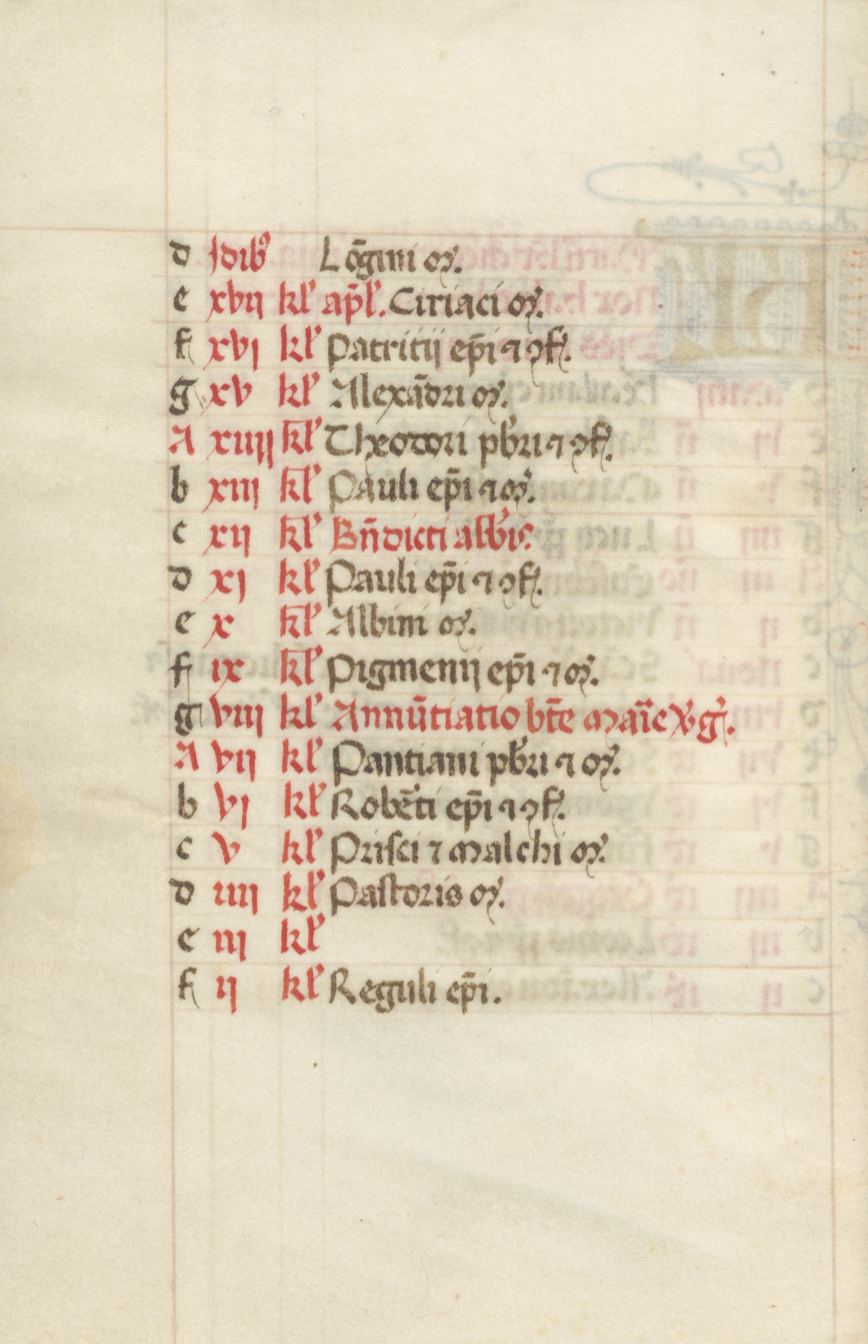 d Idib⁹ Lōgini m̄.
e xvij kl' ap̄l'. Ciriaci m̄.
f xvj kl' Patritij ep̄i ⁊ ꝯf.
g xv kl' Alexādri m̄.
A xiiij kl' Theodori pb̄ri ⁊ ꝯf.
b xiij kl' Pauli ep̄i ⁊ m̄.
c xij kl' Bn̄dicti abb̄is
d xj kl' Pauli ep̄i ⁊ ꝯf.
e x kl' Albini m̄.
f ix kl' Pigmenij ep̄i ⁊ m̄.
g viij kl' Annūtiatio bt̄e maīe v'g'.
A vij kl' Pantiani pb̄ri ⁊ m̄.
b vj kl' Robēti ep̄i ⁊ ꝯf.
c v kl' Prisci ⁊ malchi m̄.
d iiij kl' Pastoris m̄.
e iij kl'
f ij kl' Reguli ep̄i.